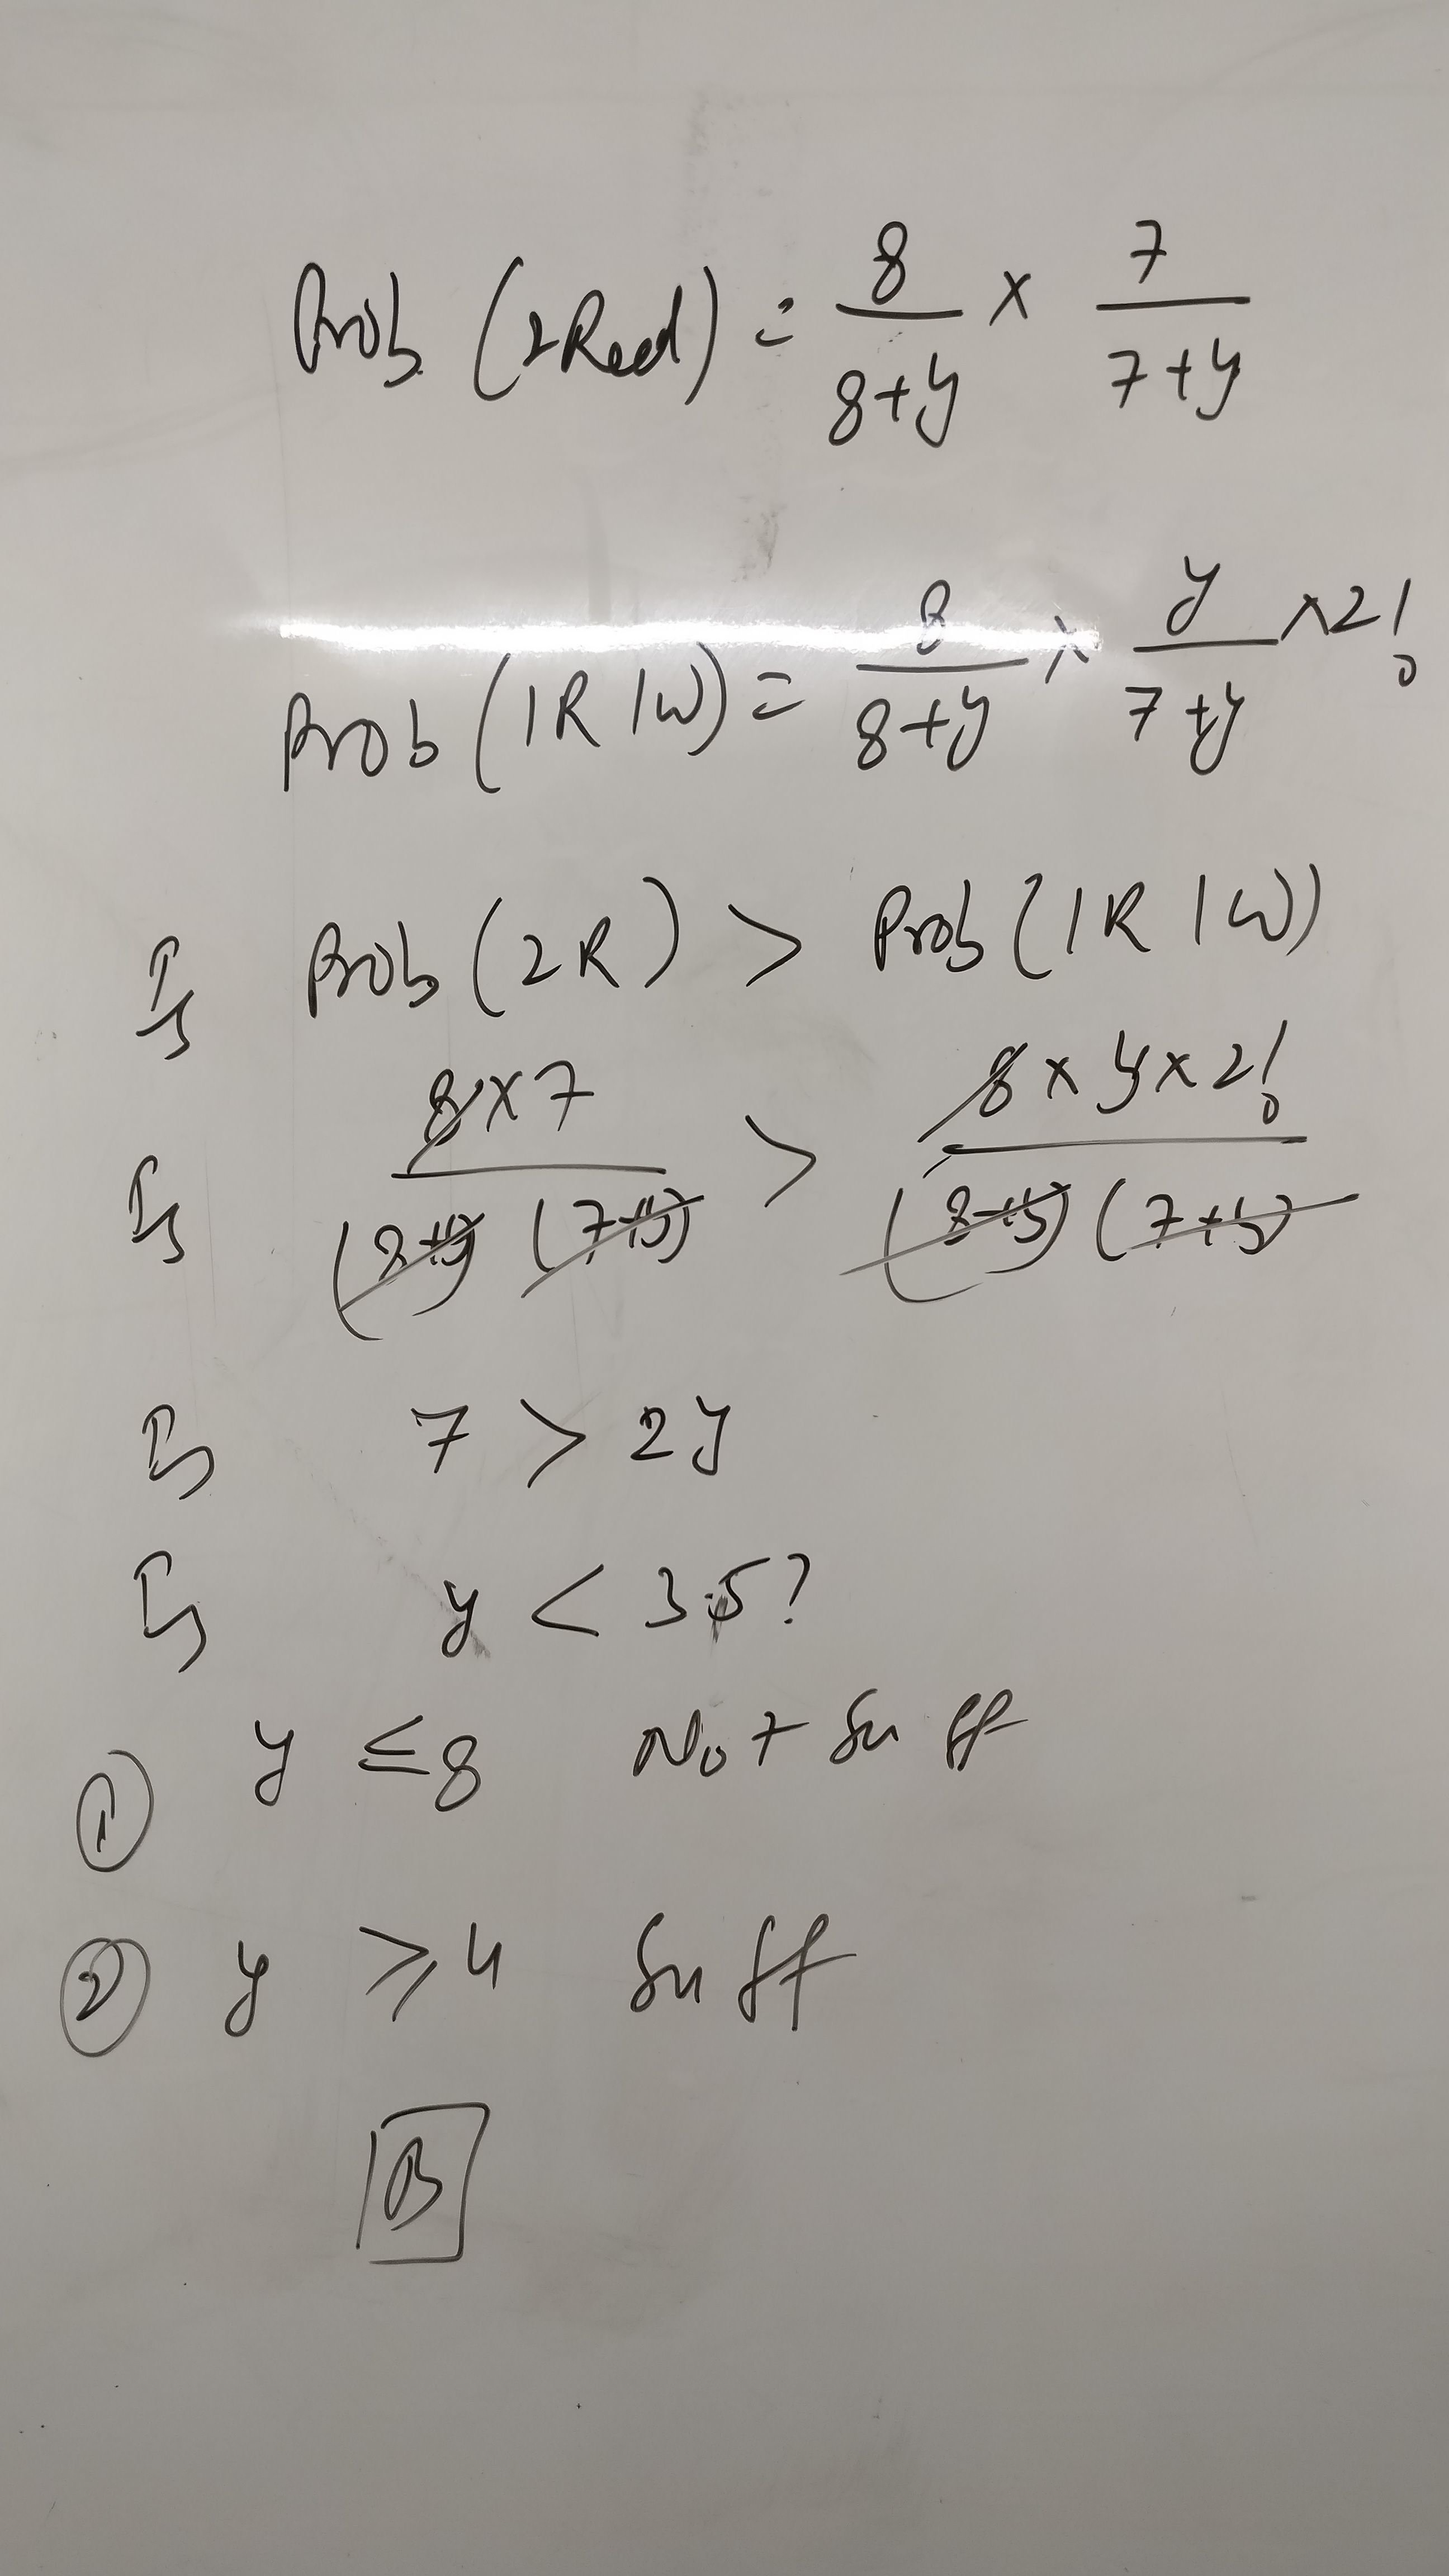 Prob (2Red) = 8/(8+y) × 7/(7+y)
Prob (1R 1W) = 8/(8+y) × y/(7+y) × 2!
Is Prob (2R) > Prob (1R 1W)
Is 8×7/((8+y)(7+y)) > 8×y×2!/((8+y)(7+y))
Is 7 > 2y
Is y < 3.5?
① y ≤ 8 Not Suff
② y ≥ 4 Suff
B